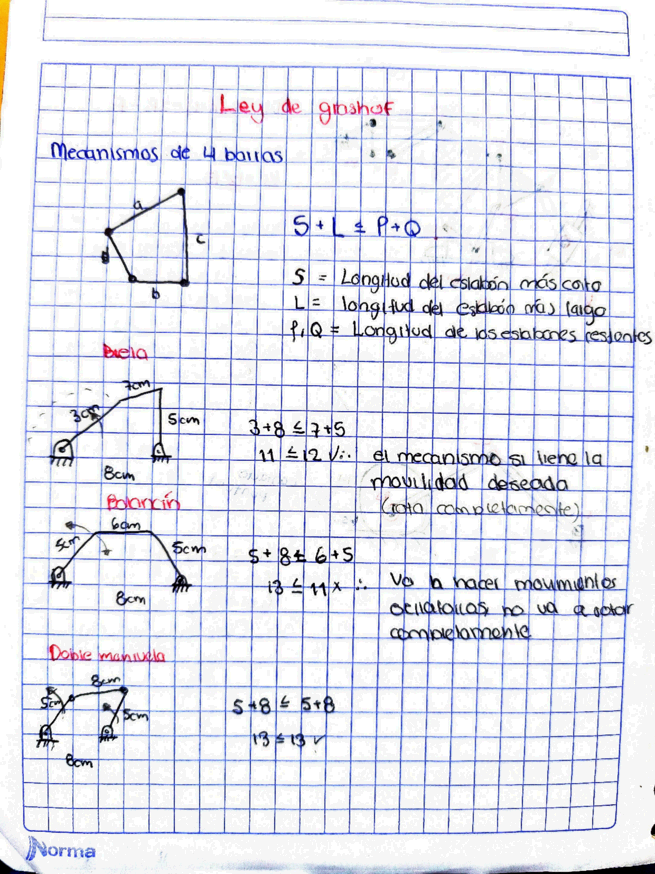 Ley de grashof
Mecanismos de 4 barras
a
c
d
b
S + L ≤ P+Q
S = Longitud del eslabón más corto
L = longitud del eslabón más largo
P, Q = Longitud de los eslabones restantes
Biela
7cm
3cm
5cm
8cm
3+8 ≤ 7+5
11 ≤ 12 ✓ ∴ el mecanismo si tiene la
movilidad deseada
(rota completamente)
Balancín
6cm
5cm
5cm
8cm
5+8 ≤ 6+5
13 ≤ 11 x ∴ Va a hacer movimientos
oscilatorios, no va a rotar
completamente
Doble manivela
8cm
5cm
5cm
8cm
5+8 ≤ 5+8
13 ≤ 13 ✓
Norma